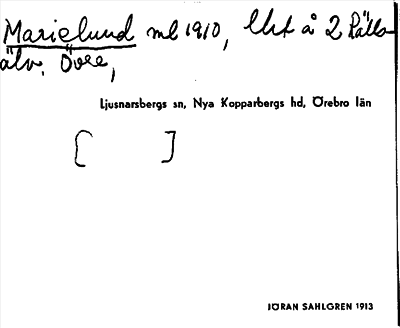 Marielund ml 1910, Utst å 2 Rälls-
älv. Övre,
Ljusnarsbergs sn, Nya Kopparbergs hd, Örebro län
[ ]
JÖRAN SAHLGREN 1913